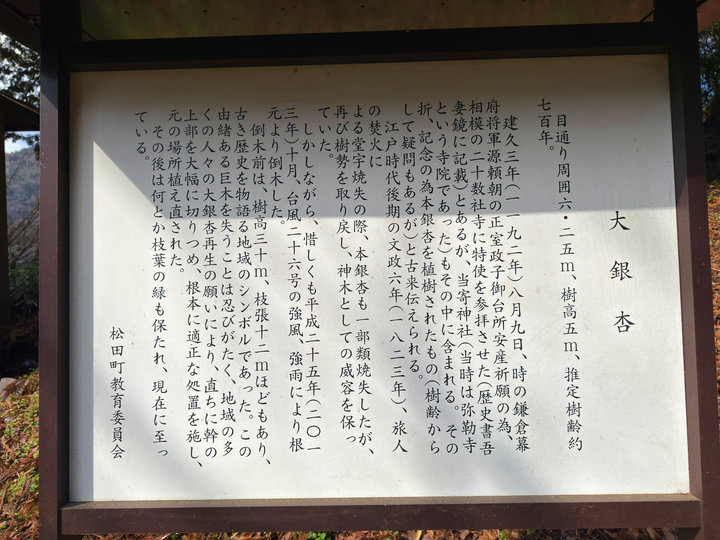 大銀杏
目通り周囲六・二五ｍ、樹高五ｍ、推定樹齢約
七百年。
建久三年(一一九二年)八月九日、時の鎌倉幕
府将軍源頼朝の正室政子御台所安産祈願の為、
相模の二十数社寺に特使を参拝させた(歴史書吾
妻鏡に記載)とあるが、当寄神社(当時は弥勒寺
という寺院であった)もその中に含まれる。その
折、記念の為本銀杏を植樹されたもの(樹齢から
して疑問もあるが)と古来伝えられる。
江戸時代後期の文政六年(一八二三年)、旅人
の焚火に
よる堂宇焼失の際、本銀杏も一部類焼失したが、
再び樹勢を取り戻し、神木としての威容を保っ
ていた。
しかしながら、惜しくも平成二十五年(二〇一
三年)十月、台風二十六号の強風、強雨により根
元より倒木した。
倒木前は、樹高三十ｍ、枝張十二ｍほどもあり、
古き歴史を物語る地域のシンボルであった。この
由緒ある巨木を失うことは忍びがたく、地域の多
くの人々の大銀杏再生の願いにより、直ちに幹の
上部を大幅に切りつめ、根本に適正な処置を施し、
元の場所植え直された。
その後は何とか枝葉の緑も保たれ、現在に至っ
ている。
松田町教育委員会